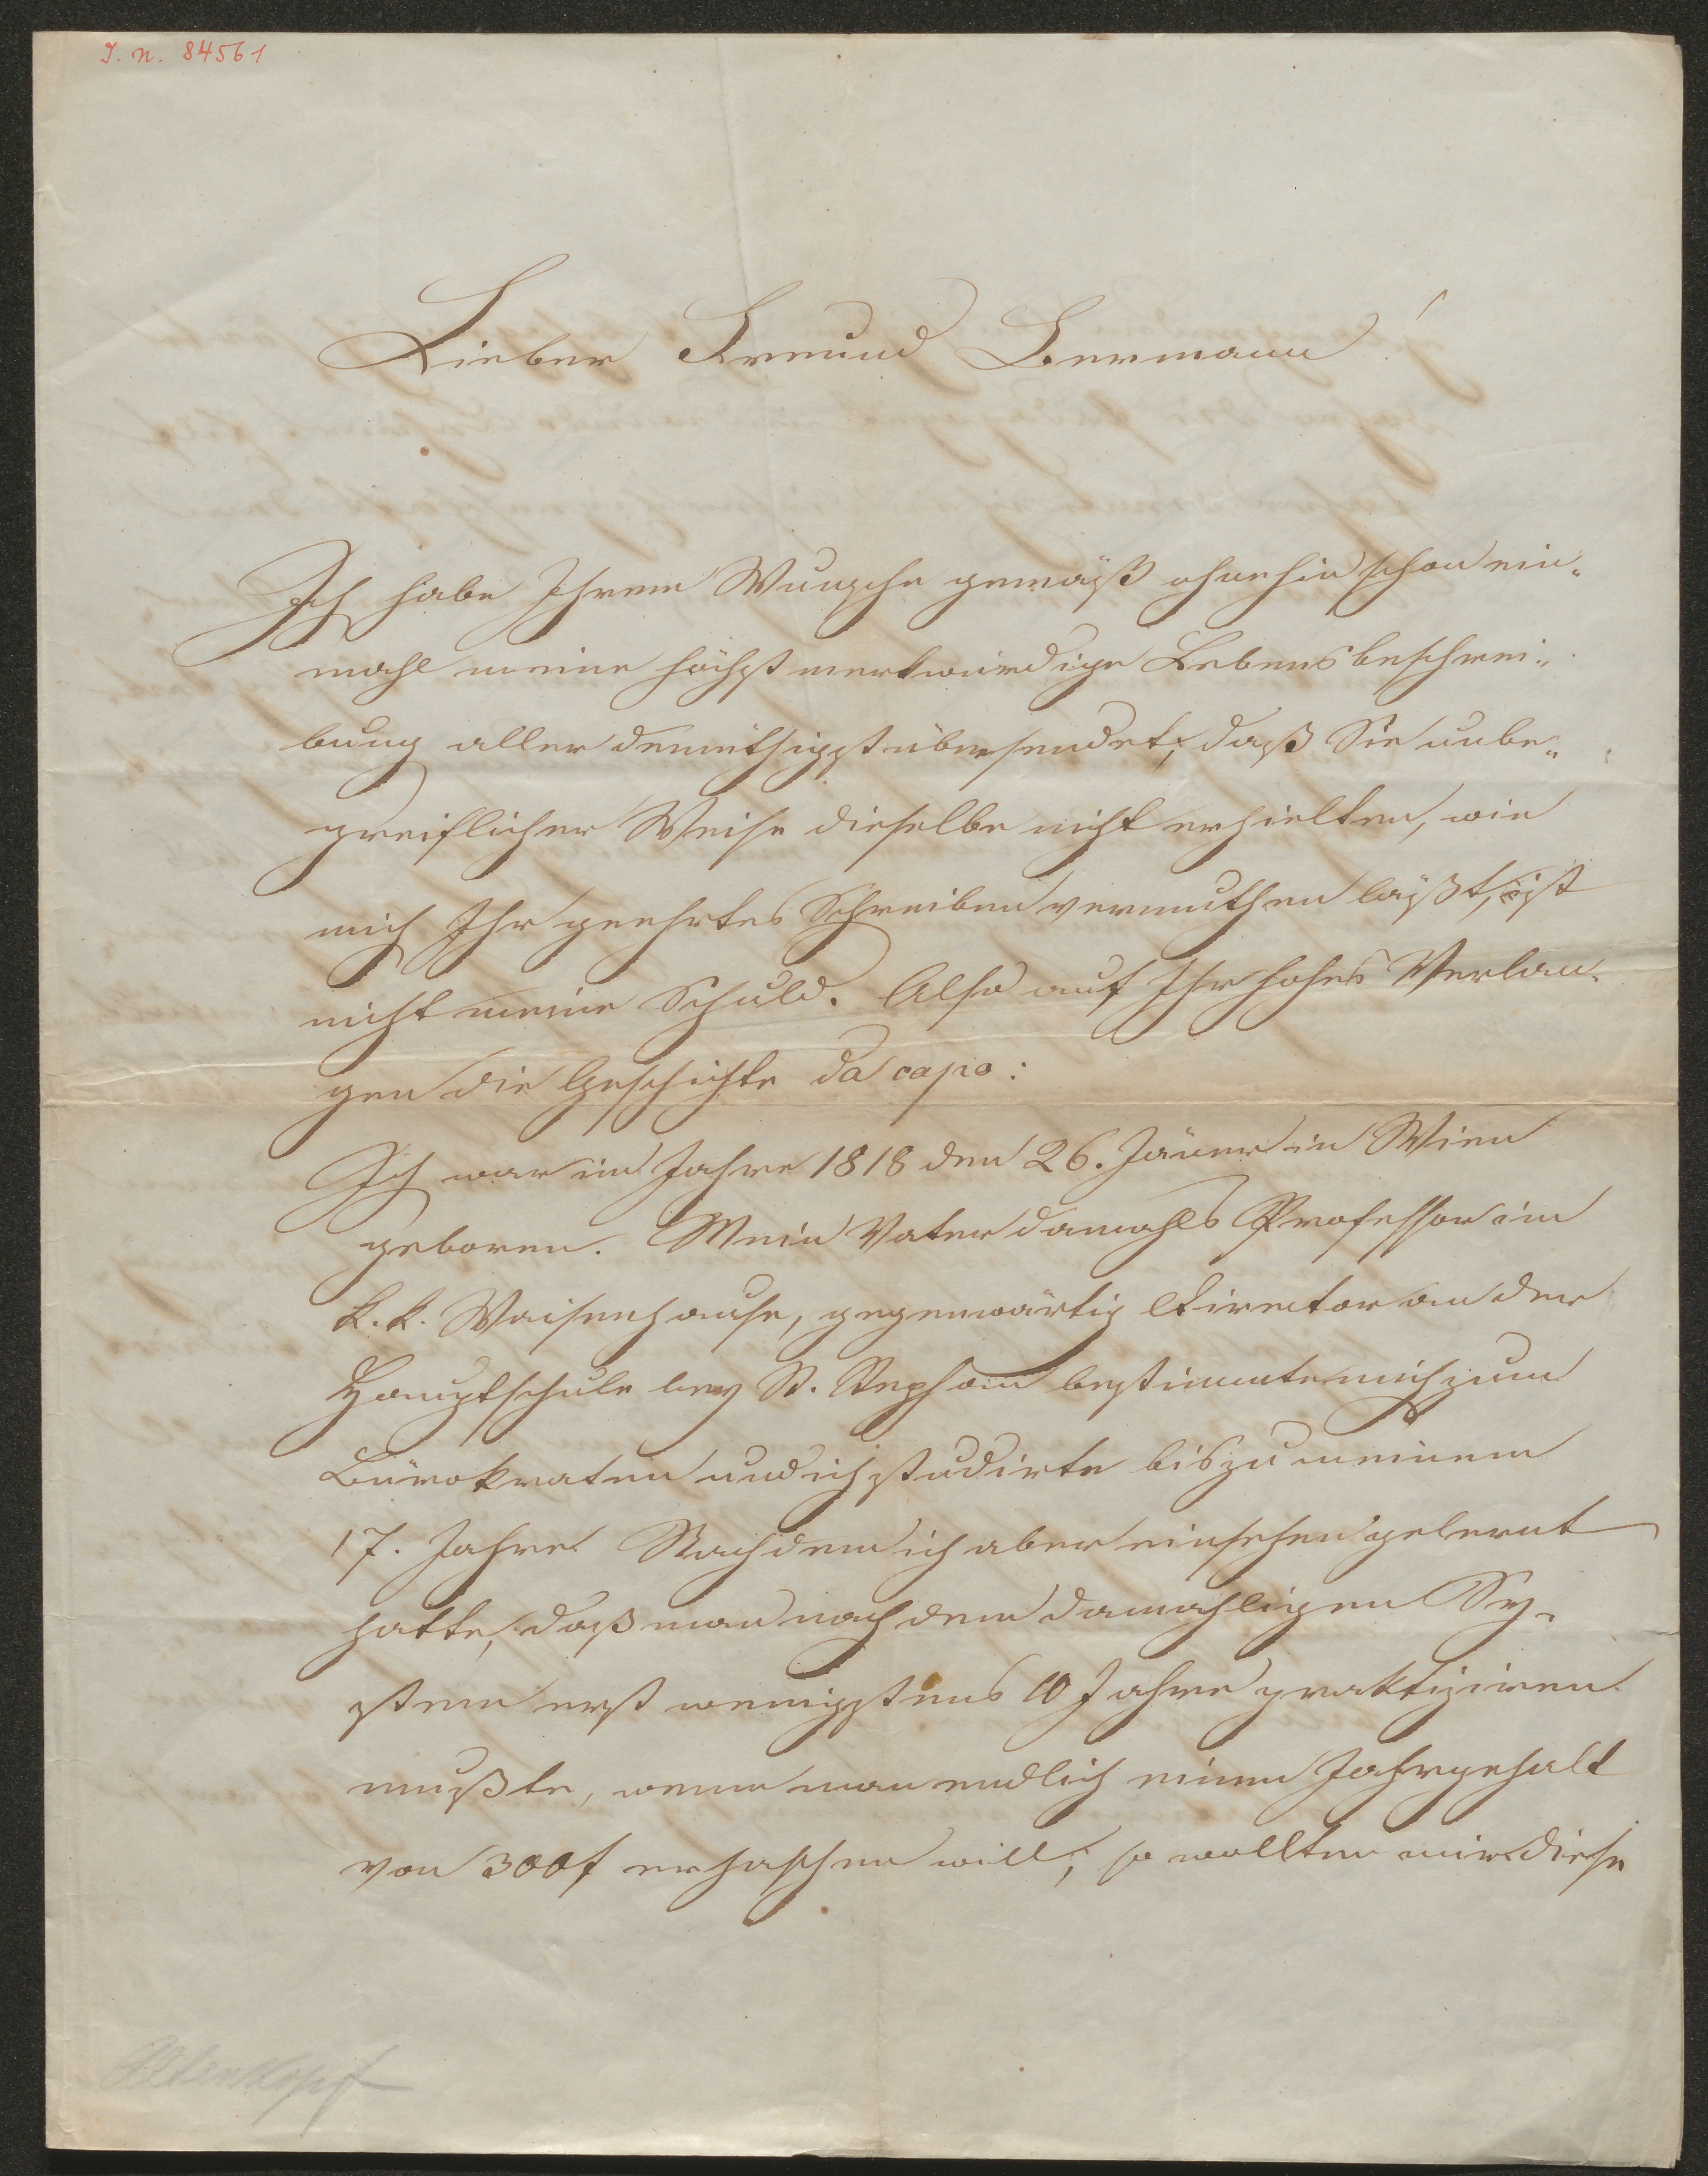 I. N. 84561
Lieber Freund Bermann!
Ich habe Ihrem Wunsche gemäß ohnehin schon ein-
mahl meine höchst merkwürdige Lebensbeschrei-
bung aller demüthigst übersendet; daß Sie unbe-
greiflicher Weise dieselbe nicht erhielten, wie
mich Ihr geehrtes Schreiben vermuthen läßt, ist
nicht meine Schuld. Also auf Ihr hohes Verlan-
gen die Geschichte da capo:
Ich war im Jahre 1818 den 26. Jäner in Wien
geboren. Mein Vater damahls Professor im
k. k. Waisenhause, gegenwärtig Director an der
Hauptschule bey St. Stephan bestimmte mich zum
Bürokraten und ich studirte bis zu meinem
17. Jahre. Nachdem ich aber einsehen gelernt
hatte, daß man nach dem damahligen Sy-
stem erst wenigstens 10 Jahre praktiziren
mußte, wenn man endlich einen Jahrgehalt
von 300 f erhaschen will; so wollten mir diese